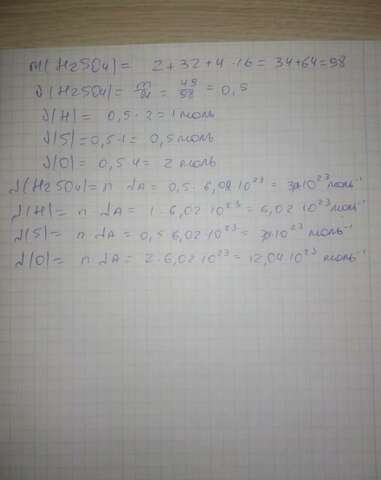 M(H2SO4) = 2+32+4·16 = 34+64=98
J(H2SO4) = m/M = 49/98 = 0,5
J(H) = 0,5·2 = 1 моль
J(S) = 0,5·1 = 0,5 моль
J(O) = 0,5·4 = 2 моль
J(H2SO4) = n · JA = 0,5 · 6,02·10²³ = 3·10²³ моль⁻¹
J(H) = n · JA = 1·6,02·10²³ = 6,02·10²³ моль⁻¹
J(S) = n · JA = 0,5·6,02·10²³ = 3·10²³ моль⁻¹
J(O) = n · JA = 2·6,02·10²³ = 12,04·10²³ моль⁻¹